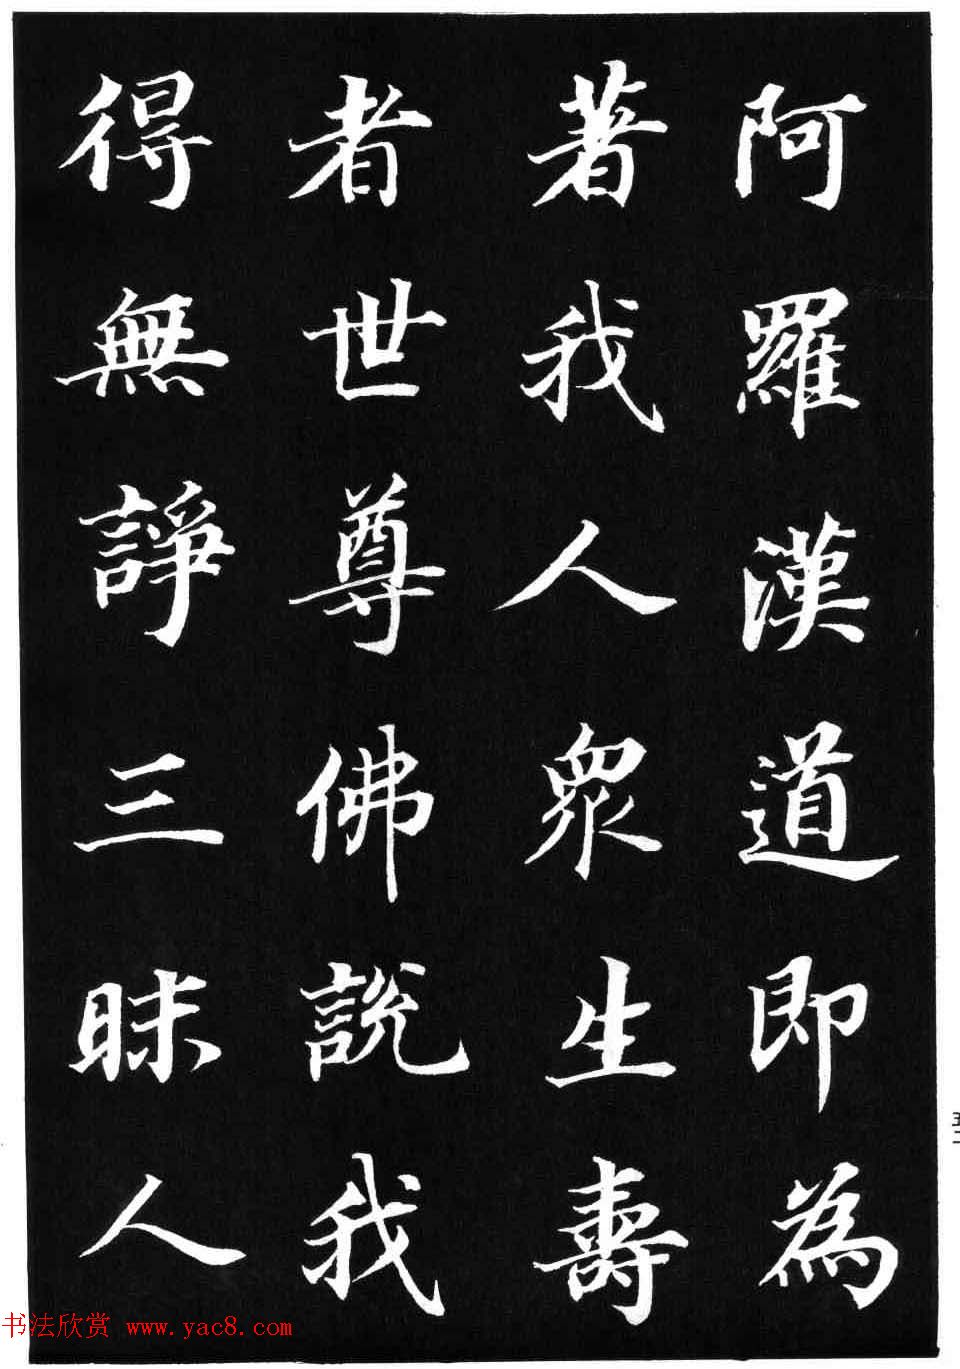 阿羅漢道即為
著我人衆生壽
者世尊佛說我
得無諍三昧人
书法欣赏 www.yac8.com